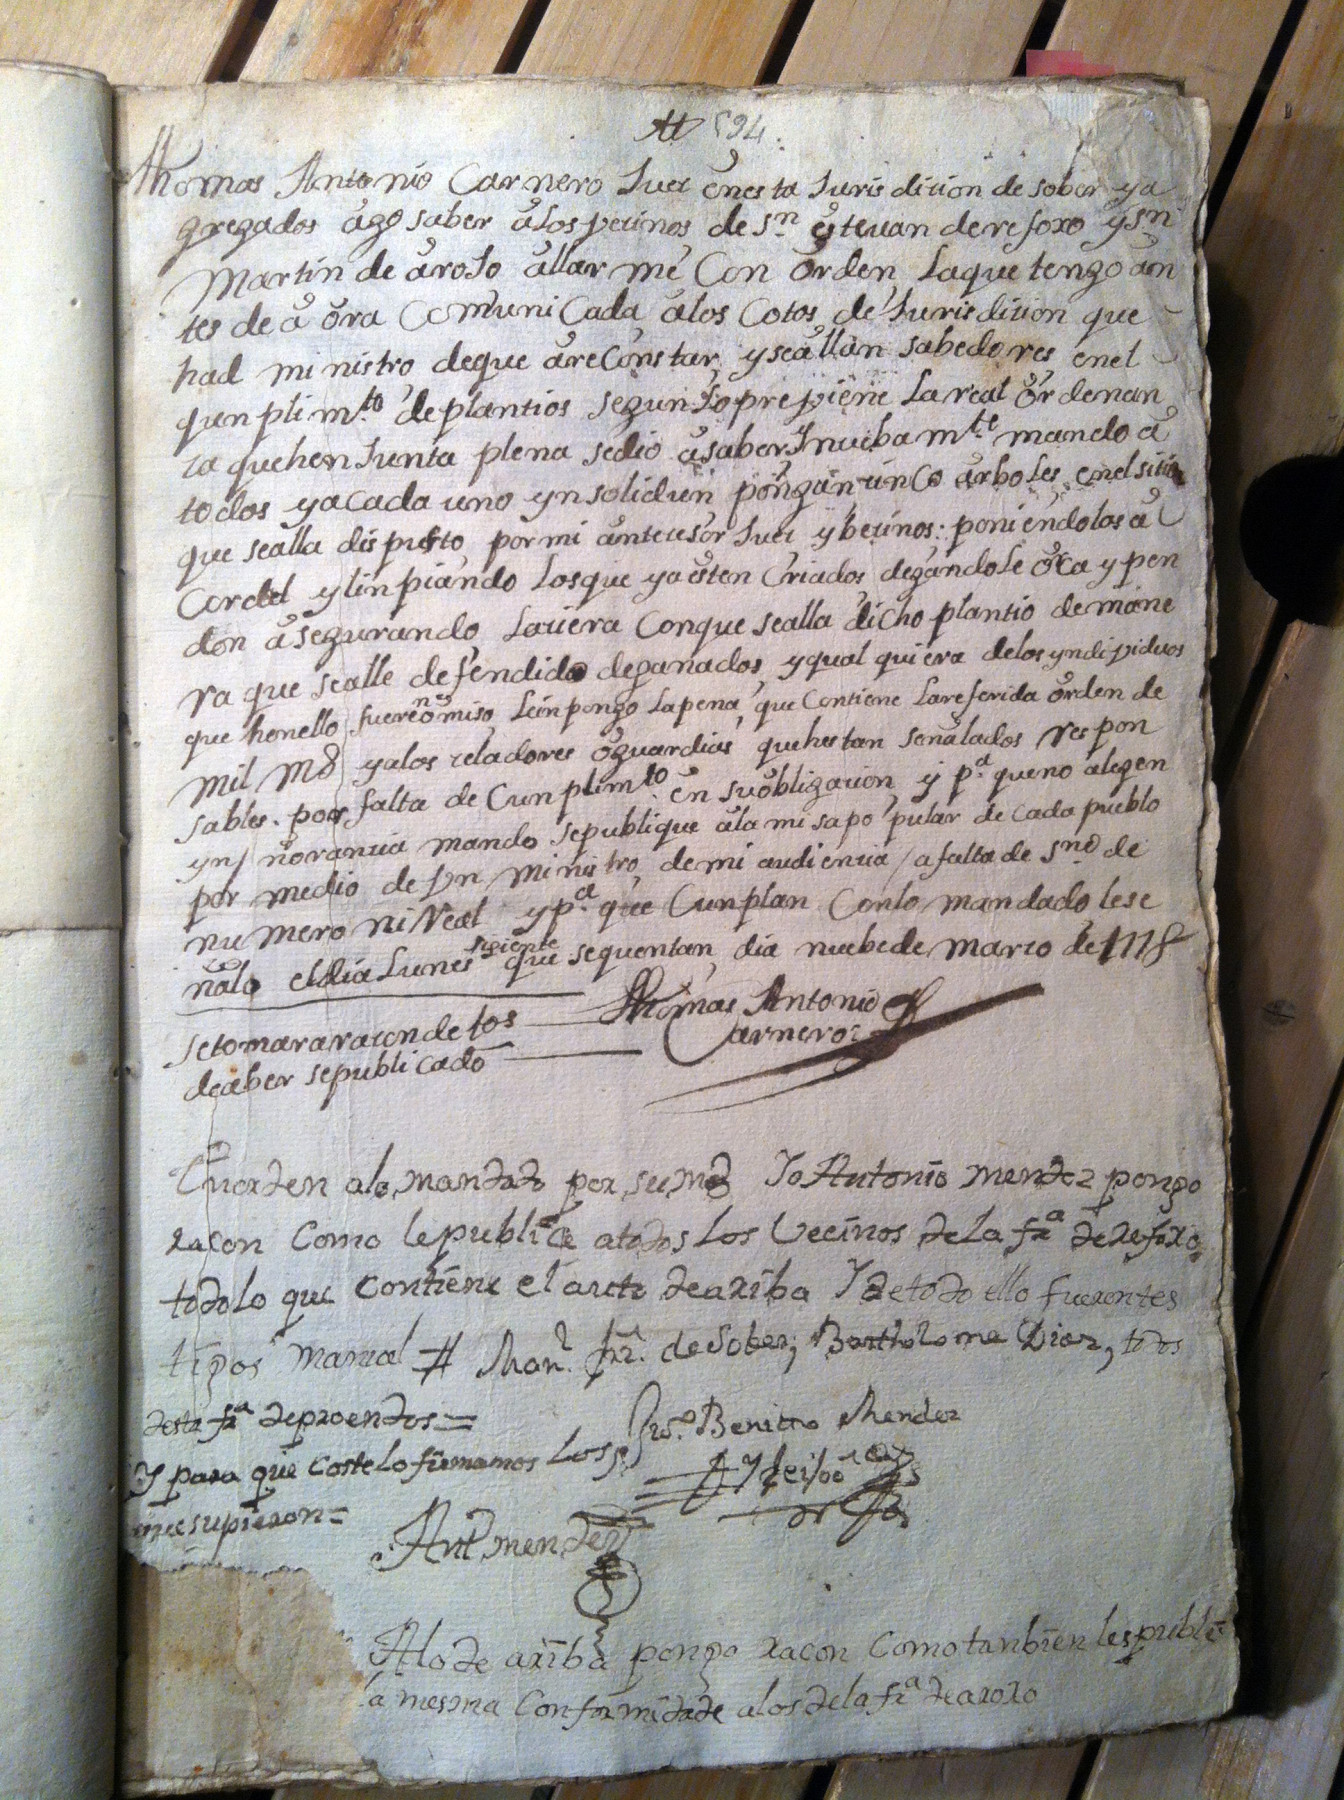 594.
Thomas Antonio Carnero Juez en esta Jurisdizion de sober ya
gregados ago saber alos vezinos de Sn. estevan de refoxo y Sn
Martin de aroJo allarme Con orden, la que tengo an
tes de a ora Comunicada alos Cotos de Jurisdizion que
had ministro de que areConstar, y seallan sabedores enel
qunplimto. de plantios segun lo previene La real ordenan
za quehen Junta plena sedio asaber Y nuebamte. mando a
todos yacada uno ynsolidun pongan zinco arboles enelsitio
que sealla dispuesto por mi antezesor Juez y bezinos: poniendolos a
Cordel y linpiando los que ya esten Criados degandole orca y pen
don asegurando laziera Conque sealla dicho plantio demane
ra que sealle defendido deganados, yqual quiera delos yndividuos
que henello fueren omiso leinpongo la pena que Contiene la referida orden de
mil Ms yalos zeladores o guardias quehestan señalados respon
sables. por falta de Cunplimto. en suobligazion y pa. queno alegen
ynnoranzia mando sepublique ala misa popular de cada pueblo
por medio de Vn ministro, de mi audienzia / a falta de sno de
numero ni Real ypa. que Cunplan Conlo mandado lese
ñalo eldia Lunes sigiente que sequentan dia nuebe de marzo de 1778
setomara razon de tos Thomas Antonio
deaber sepublicado Carnero
Cuorden alo mandado por su md Yo Antonio mendez pongo
racon Como lepublice atodos los Vecinos dela fra de Refoxo
todo lo que contiene el auto dearriba Y de todo ello fueron tes
tigos Manuel Manl. frz. de Sober, Bartholome Diaz, todos
desta fra deproendos =
Y para que coste lo firmamos los Benitto Mendez
que supieron =
Antt mendez
Alo de ariba pongo racon Como tanbien les publice
la mesma Conformidade alos dela fra de aroxo